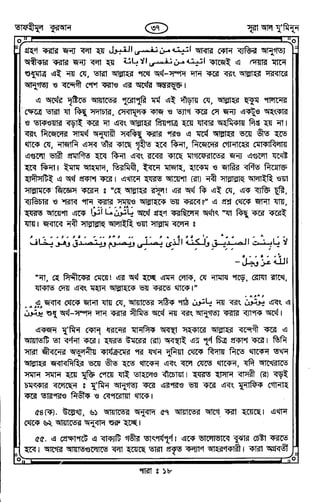 তাফহীমুল কুরআন
৩৭
সূরা আল মু'মিনূন
গ্রহণ করার জন্য বলা হয় اتيته من نفسى القبول আবার কোন ব্যক্তির আনুগত্য
অস্বীকার করার জন্য বলা হয় اتيته من نفسى الابانة কাজেই এ দেয়ার মানে
শুধুমাত্র এই নয় যে, তারা আল্লাহর পথে অর্থ-সম্পদ দান করে বরং আল্লাহর দরবারে
আনুগত্য ও বন্দেগী পেশ করাও এর অর্থের অন্তরভুক্ত।
এ অর্থের দৃষ্টিতে আয়াতের পুরোপুরি মর্ম এই দাঁড়ায় যে, আল্লাহর হুকুম পালনের
ক্ষেত্রে তারা যা কিছু সদাচার, সেবামূলক কাজ ও ত্যাগ করে সে জন্য একটুও অহংকার
ও তাকওয়ার বড়াই করে না এবং আল্লাহর প্রিয়পাত্র হয়ে যাবার অহমিকায় লিপ্ত হয় না।
বরং নিজেদের সামর্থ অনুযায়ী সবকিছু করার পরও এ মর্মে আল্লাহর ভয়ে ভীত হতে
থাকে যে, নাজানি এসব তাঁর কাছে গৃহীত হবে কিনা, নিজেদের গোনাহের মোকাবিলায়
এগুলো ভারী প্রমাণিত হবে কিনা এবং রবের কাছে মাগফেরাতের জন্য এগুলো যথেষ্ট
হবে কিনা। ইমাম আহমাদ, তিরমিযী, ইবনে মাজাহ, হাকেম ও জারির বর্ণিত নিম্নোক্ত
হাদীসটিই এ অর্থ প্রকাশ করে। এখানে হযরত আয়েশা (রা) নবী সাল্লাল্লাহু আলাইহি ওয়া
সাল্লামকে জিজ্ঞেস করেন : "হে আল্লাহর রসূল! এর অর্থ কি এই যে, এক ব্যক্তি চুরি,
ব্যভিচার ও শরাব পান করার সময়ও আল্লাহকে ভয় করবে?" এ প্রশ্ন থেকে জানা যায়,
হযরত আয়েশা একে يأتون ما أتوا অর্থে গ্রহণ করছিলেন অর্থাৎ "যা কিছু করে করেই
যায়। জবাবে নবী সাল্লাল্লাহু আলাইহি ওয়া সাল্লাম বলেন :
لا يابنت الصديق ولكنه الذى يصلى ويصوم ويتصدق وهو يخاف
الله عز وجل -
"না, হে সিদ্দীকের মেয়ে! এর অর্থ হচ্ছে এমন লোক, যে নামায পড়ে, রোযা রাখে,
যাকাত দেয় এবং মহান আল্লাহকে ভয় করতে থাকে।"
এ জবাব থেকে জানা যায় যে, আয়াতের সঠিক পাঠ يأتون নয় বরং يؤتون এবং এ
يؤتون শুধু অর্থ-সম্পদ দান করার সীমিত অর্থে নয় বরং আনুগত্য করার ব্যাপক অর্থে।
একজন মু'মিন কোন্ ধরনের মানসিক অবস্থা সহকারে আল্লাহর বন্দেগী করে এ
আয়াতটি তা বর্ণনা করে। হযরত উমরের (রা) অবস্থাই এর পূর্ণ চিত্র প্রকাশ করে। তিনি
সারা জীবনের অতুলনীয় কার্যক্রমের পর যখন দুনিয়া থেকে বিদায় নিতে থাকেন তখন
আল্লাহর জবাবদিহির ভয়ে ভীত হতে থাকেন এবং বলে যেতে থাকেন, যদি আখেরাতে
সমান সমান হয়ে মুক্তি পেয়ে যাই তাহলেও বাঁচোয়া। হযরত হাসান বাসরী (র) বড়ই
চমৎকার বলেছেন : মু'মিন আনুগত্য করে এরপরও ভয় করে এবং মুনাফিক গোনাহ
করে তারপরও নির্ভীক ও বেপরোয়া থাকে।
৫৪(ক). উল্লেখ্য, ৬১ আয়াতের অনুবাদ ৫৭ আয়াতের আগে করা হয়েছে। এখান
থেকে ৬২ আয়াতের অনুবাদ শুরু হচ্ছে।
৫৫. এ প্রেক্ষাপটে এ বাক্যটি গভীর তাৎপর্যপূর্ণ। একে ভালোভাবে বুঝার চেষ্টা করতে
হবে। আগের আয়াতগুলোতে বলা হয়েছে তারা প্রকৃত কল্যাণ আহরণকারী। কারা অগ্রবর্তী
পারা : ১৮